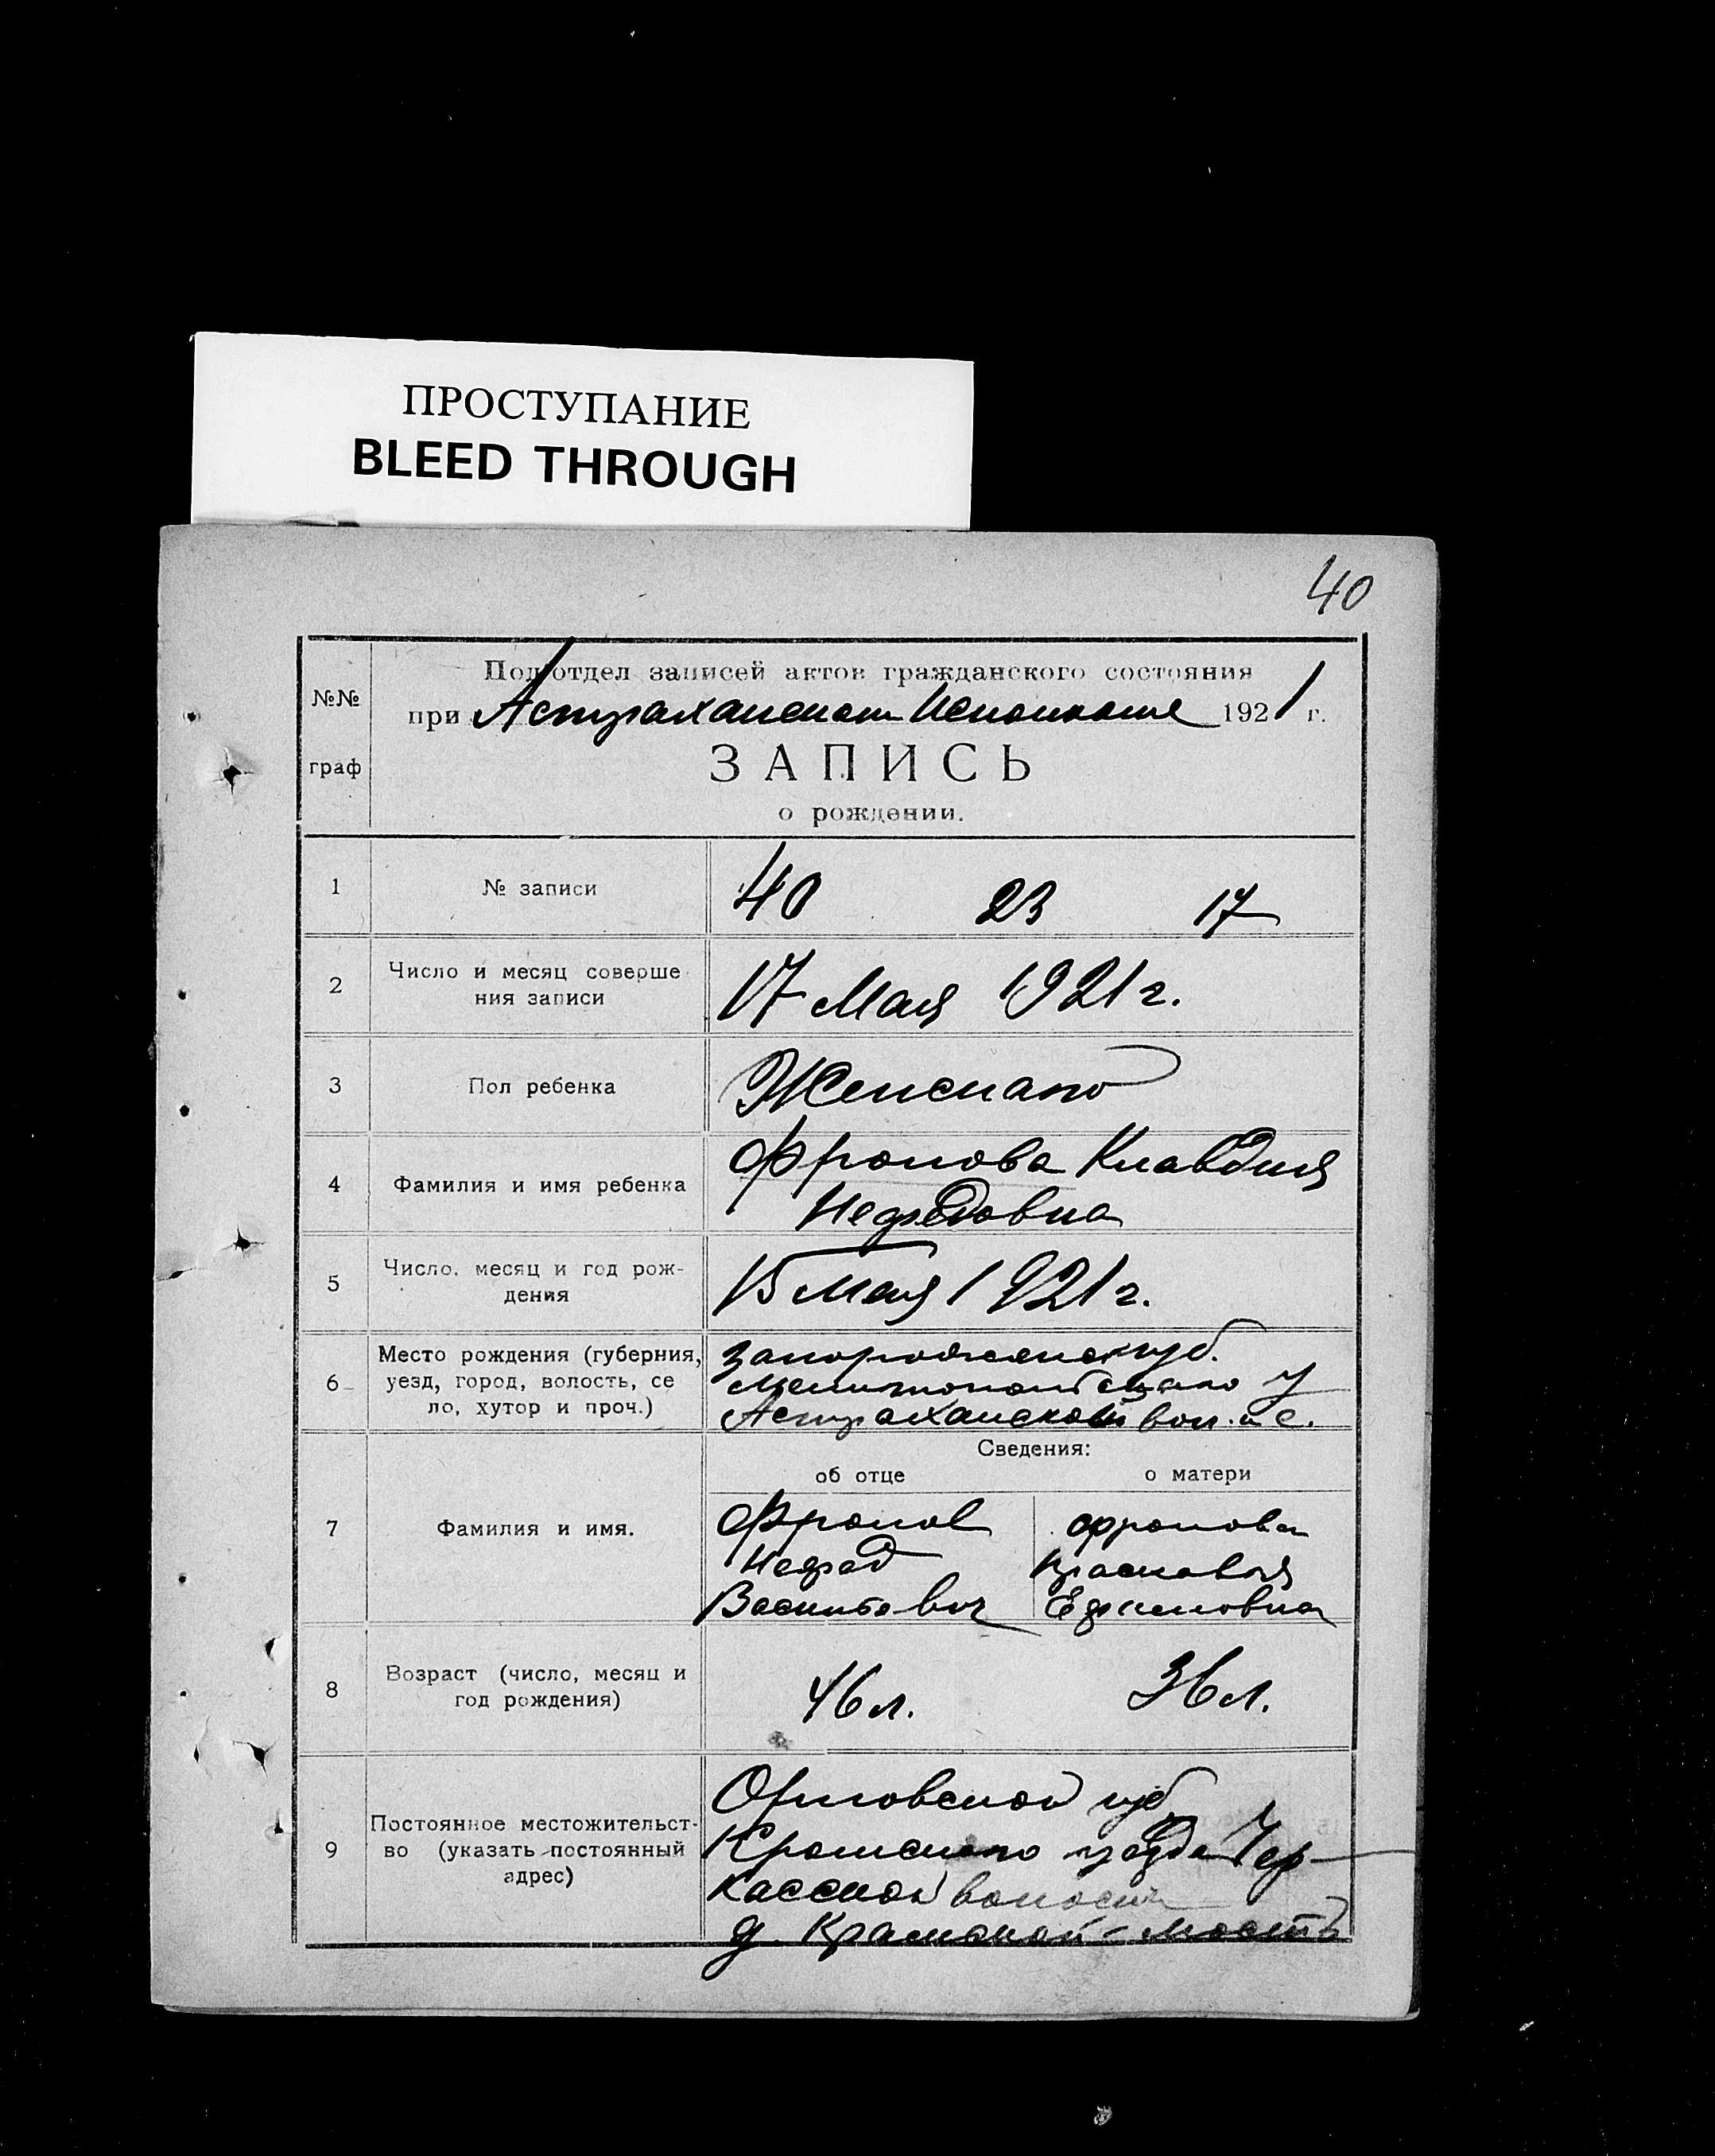 ПРОСТУПАНИЕ
BLEED THROUGH
40
№№
граф
Подотдел записей актов гражданского состояния
при Астраханском Исполкоме 1921 г.
ЗАПИСЬ
о рождении.
1 № записи 40 23 17
2 Число и месяц соверше
ния записи
17 Мая 1921 г.
3 Пол ребенка Женскаго
4 Фамилия и имя ребенка
Фролова Клавдия
Нефедовна
5 Число, месяц и год рож-
дения
15 мая 1921 г.
6 Место рождения (губерния,
уезд, город, волость, се
ло, хутор и проч.)
Запорожск губ.
Мелитопольскаго у
Астраханской вол. и с.
Сведения:
об отце о матери
7 Фамилия и имя.
Фролов Фролова
Нефед Прасковья
Васильевич Ефимовна
8 Возраст (число, месяц и
год рождения)
46 л. 36 л.
9 Постоянное местожительст-
во (указать постоянный
адрес)
Орловской губ
Кромскаго уезда Чер-
касской волости
д. Крамской-мостъ